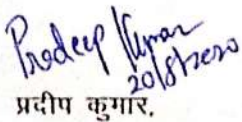 Pradeep Kumar
20/8/2020
प्रदीप कुमार,